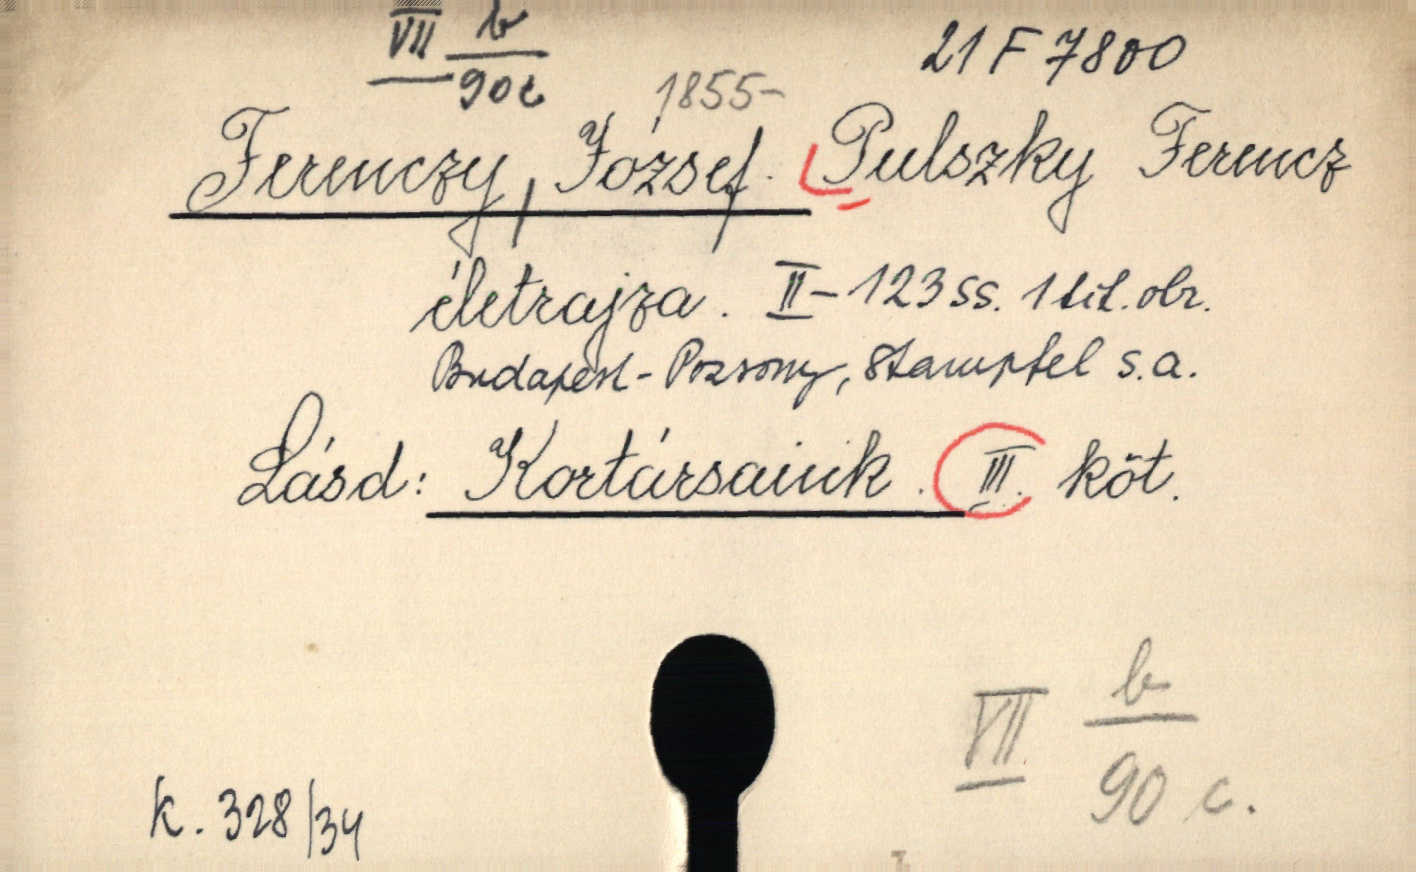 VII b/90c
21 F 7800
1855-
Ferenczy, József. Pulszky Ferencz
életrajza. II-123 ss. 1 tit. obr.
Budapest-Pozsony, Stampfel s.a.
Lásd: Kortársaink. III. köt.
VII b/90 c.
k. 328/34